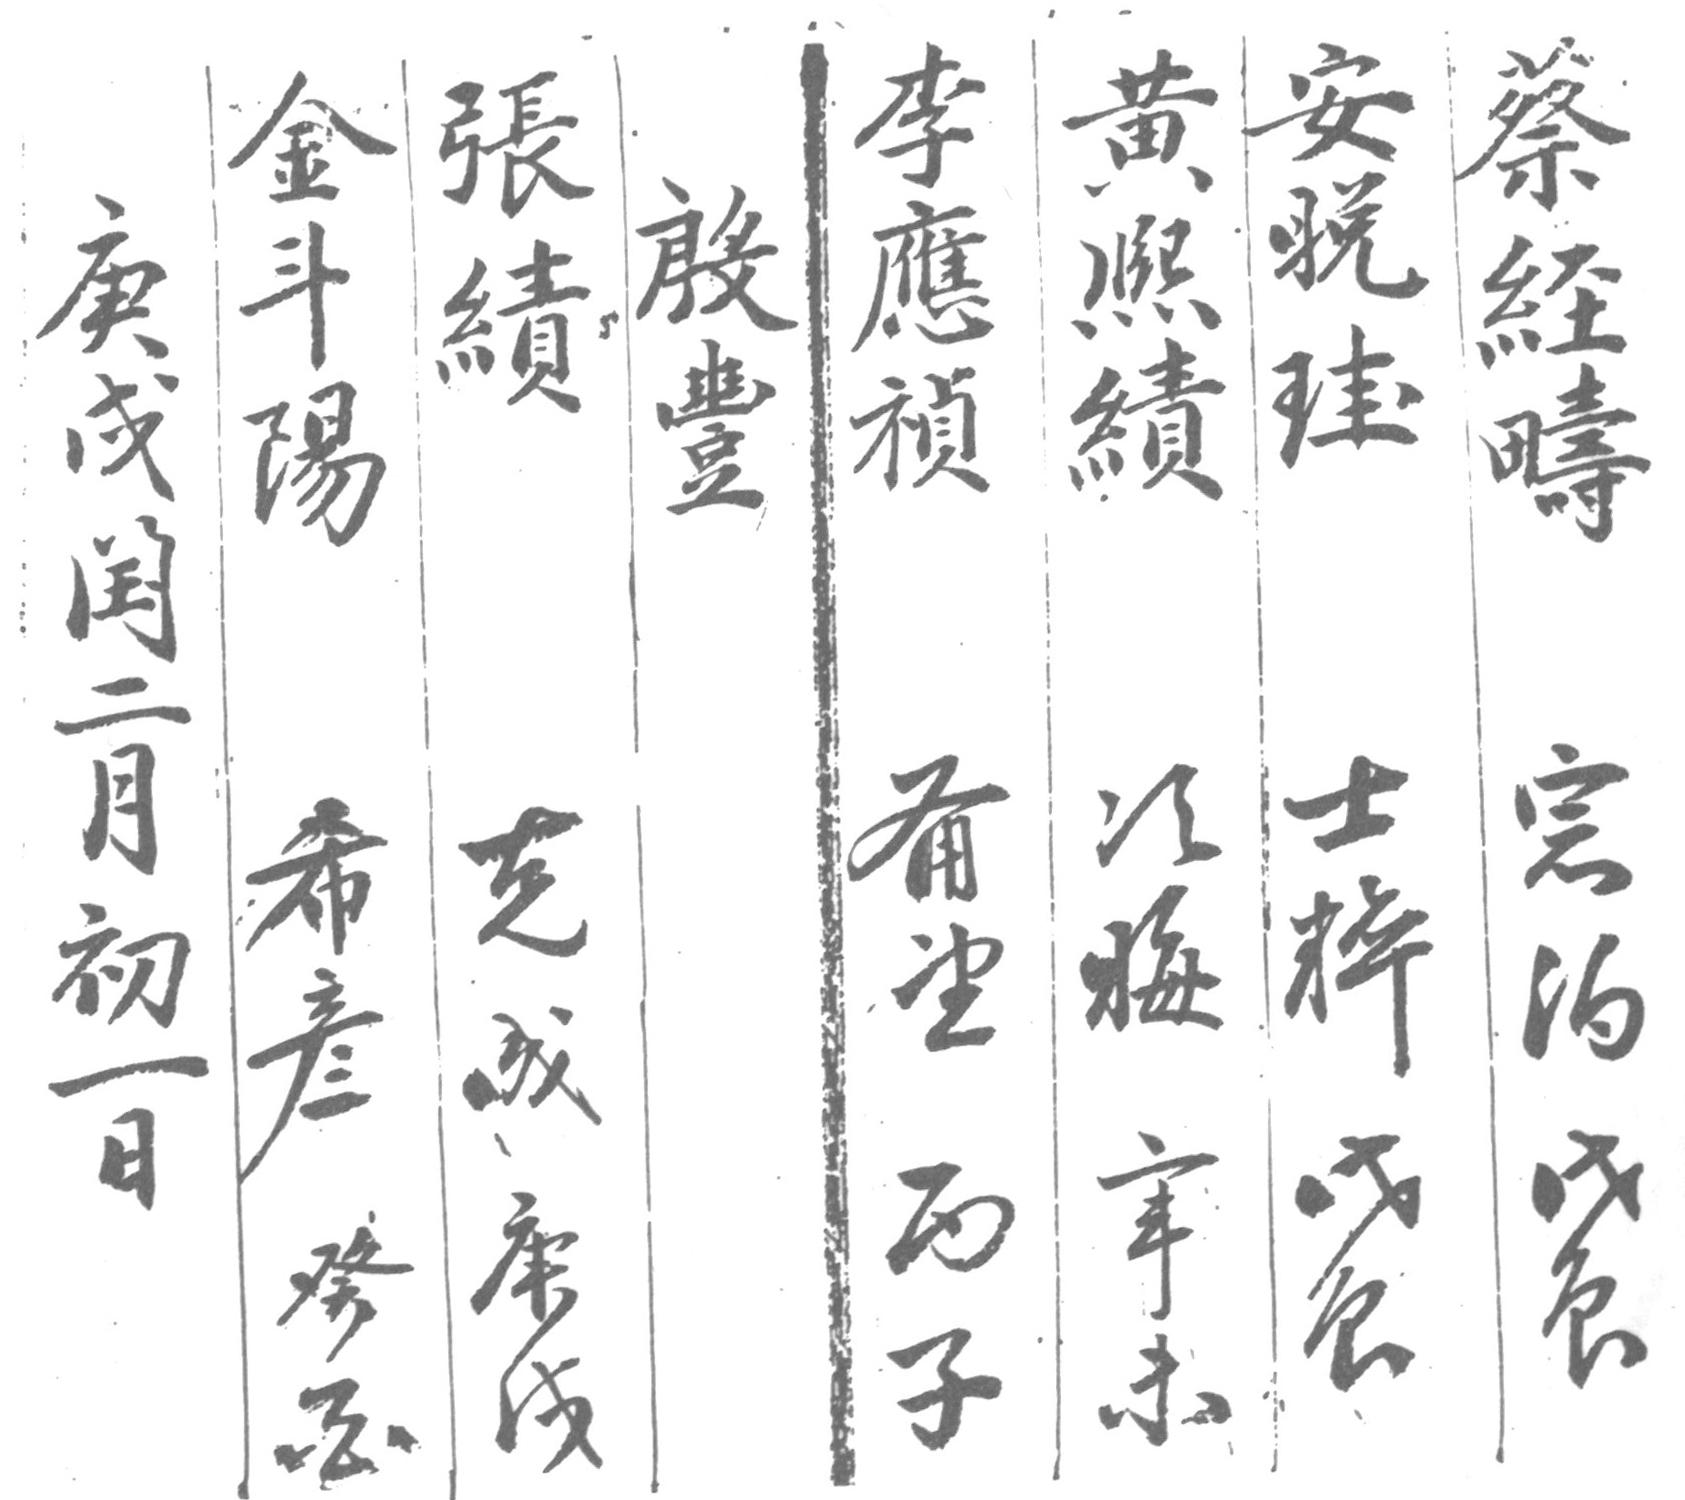 蔡経疇 宗洵 戊辰
安晥珪 士粹 戊辰
黄熈績 次晦 辛未
李應禎 希望 丙子
殷豐
張績 克成 庚戌
金斗陽 希彦 癸酉
庚戌閏二月初一日